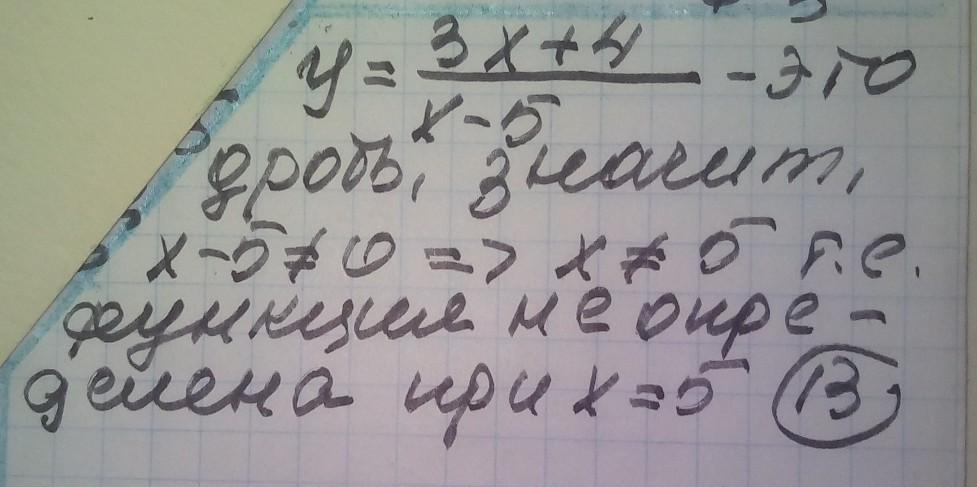 y = \frac{3x+4}{x-5} - это
дробь, значит,
x-5≠0 => x ≠ 5 т.е.
функция не опре-
делена при x=5 В